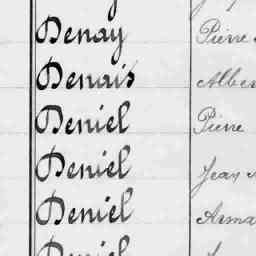 Denay Pierre
Denais Alber
Deniel Pierre
Deniel Jean
Deniel Arma
Deniel